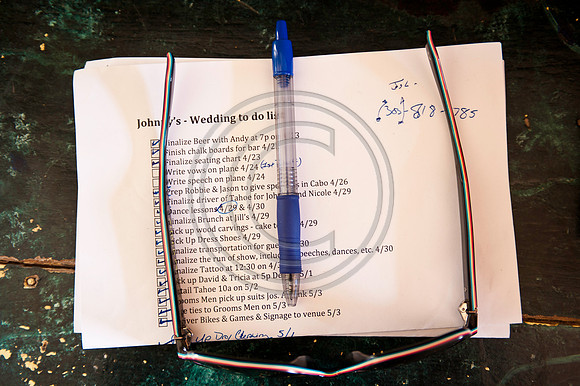 Johnny's - Wedding to do list
Finalize Beer with Andy at 7p on 3
Finish chalk boards for bar 4/23
Finalize seating chart 4/23
Write vows on plane 4/24
Write speech on plane 4/24
Prep Robbie & Jason to give sp s in Cabo 4/26
Finalize driver of Tahoe for Joh and Nicole 4/29
Dance lessons 4/29 & 4/30
Finalize Brunch at Jill's 4/29
Pick up wood carvings - cake to 4/29
Pick Up Dress Shoes 4/29
Finalize transportation for gue 30
Finalize the run of show, includ eeches, dances, etc. 4/30
Finalize Tattoo at 12:30 on 4/3
Pick up David & Tricia at 5p Do 5/1
tail Tahoe 10a on 5/2
Grooms Men pick up suits Jos. A nk 5/3
ve ties to Grooms Men on 5/3
iver Bikes & Games & Signage to venue 5/3
Up Dry 5/1
818-785
C